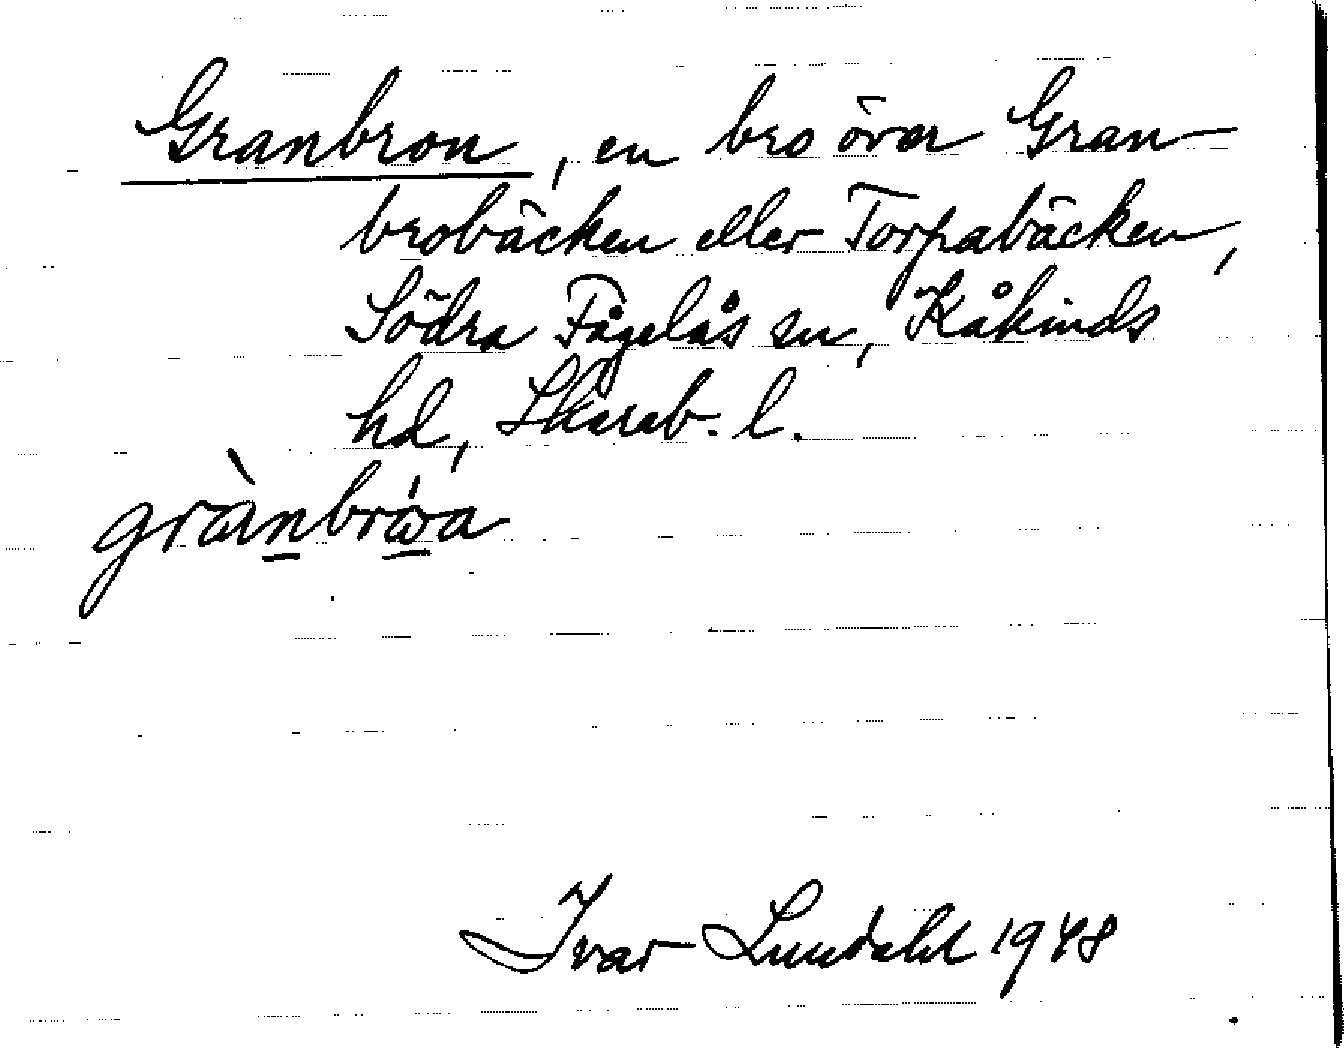 Granbron, en bro över Gran-
brobäcken eller Torpabäcken,
Södra Fågelås sn, Kåkinds
hd, Skarab. l.
grànbrὼa
Ivar Lundahl 1948